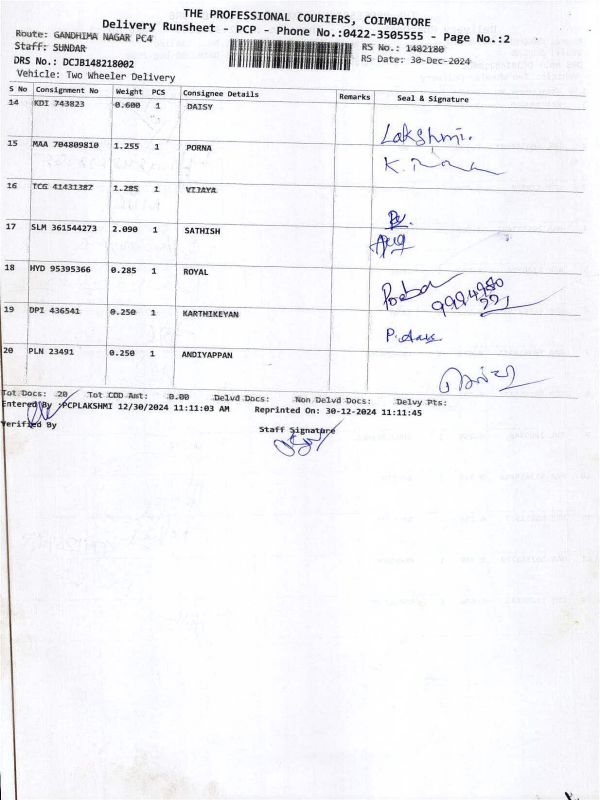 THE PROFESSIONAL COURIERS, COIMBATORE
Delivery Runsheet - PCP - Phone No.:0422-3505555 - Page No.:2
Route: GANDHIMA NAGAR PC4 RS No.: 1482180
Staff: SUNDAR RS Date: 30-Dec-2024
DRS No.: DCJB148218002
Vehicle: Two Wheeler Delivery
S No Consignment No Weight PCS Consignee Details Remarks Seal & Signature
14 KDI 743823 0.600 1 DAISY
Lakshmi.
15 MAA 704809810 1.255 1 PORNA
K.
16 TCG 41431387 1.285 1 VIJAYA
17 SLM 361544273 2.090 1 SATHISH
18 HYD 95395366 0.285 1 ROYAL
19 DPI 436541 0.250 1 KARTHIKEYAN
20 PLN 23491 0.250 1 ANDIYAPPAN
Tot Docs: 20 Tot COD Amt: 0.00 Delvd Docs: Non Delvd Docs: Delvy Pts:
Entered By :PCPLAKSHMI 12/30/2024 11:11:03 AM Reprinted On: 30-12-2024 11:11:45
Verified By
Staff Signature